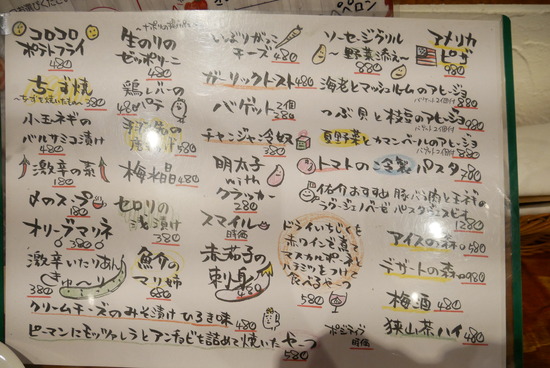 コロコロ
ポテトフライ
480
ちーず焼
380
小玉ネギの
バルサミコ漬け
480
激辛の素
180
〆のスープ
180
オリーブマリネ
380
激辛いたりあん
きゅ〜り
380
クリームチーズのみそ漬け ひろき味 480
ピーマンにモッツァレラとアンチョビを詰めて焼いたやーつ
580
生のりの
ゼッポリーニ
480
鶏レバーの
パテ
480
480
梅水晶 480
セロリの
浅漬け
380
魚介の
マリ姉
680
いぶりがっこ
チーズ 480
ガーリックトースト 480
バゲット 2個
380
チャンジャ冷奴
380
明太子
with
クラッカー
280
スマイル
時価
赤茄子の
刺身
480
ソーセージグリル
〜野菜添え〜
880
アメリカ
ピザ
980
海老とマッシュルームのアヒージョ
バゲット2個付 980
つぶ貝と枝豆のアヒージョ
バゲット2個付 880
夏野菜とカマンベールのアヒージョ
バゲット2個付 880
トマトの冷製パスタ
佑介おすすめ
1280
ドライいちじくを
赤ワインで煮て
マスカルポーネと
ハチミツをつけて
食べるやーつ
580
アイスの森
デザートの森
梅酒 480
ポジティヴ
時価
狭山茶ハイ 480